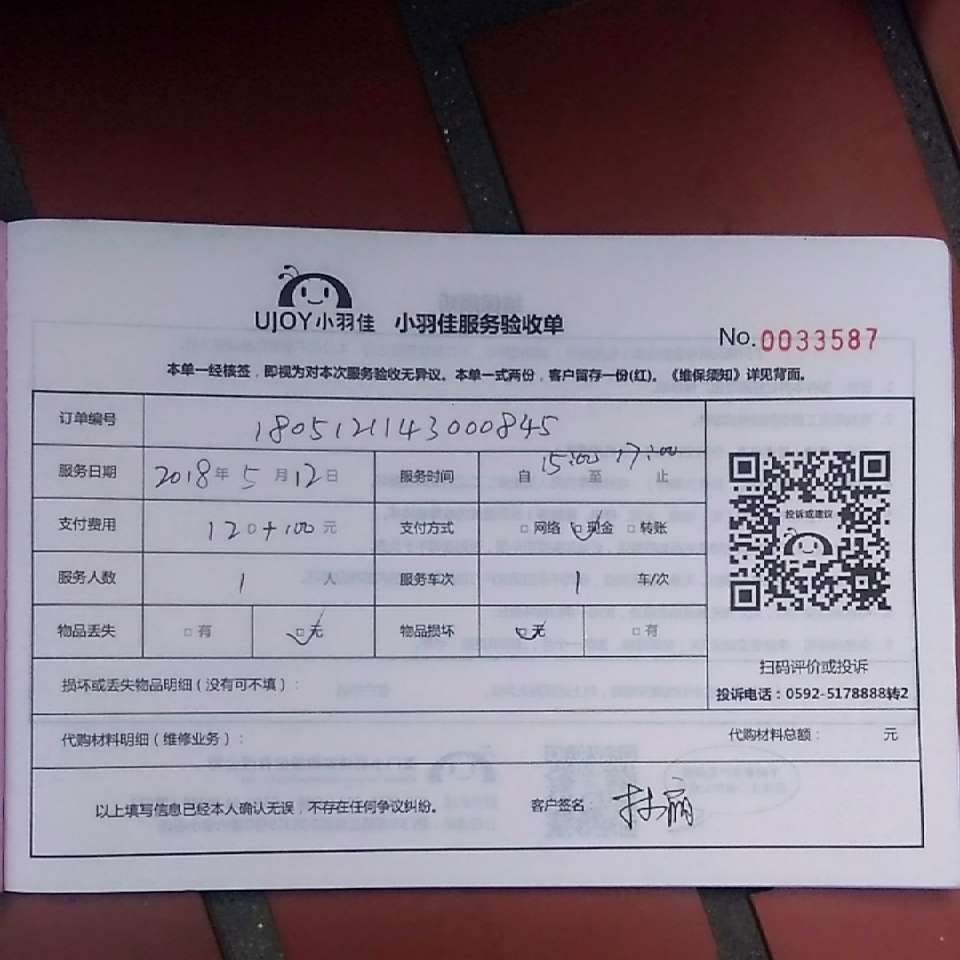 UJOY小羽佳 小羽佳服务验收单
No.0033587
本单一经核签，即视为对本次服务验收无异议。本单一式两份，客户留存一份(红)。《维保须知》详见背面。
订单编号 1805121143000845
服务日期 2018年5月12日 服务时间 自15:00至17:00止
支付费用 120+100元 支付方式 □网络 ☑现金 □转账
服务人数 1人 服务车次 1车/次
物品丢失 □有 ☑无 物品损坏 ☑无 □有
投诉或建议
扫码评价或投诉
投诉电话：0592-5178888转2
损坏或丢失物品明细（没有可不填）：
代购材料明细（维修业务）： 代购材料总额： 元
以上填写信息已经本人确认无误，不存在任何争议纠纷。 客户签名